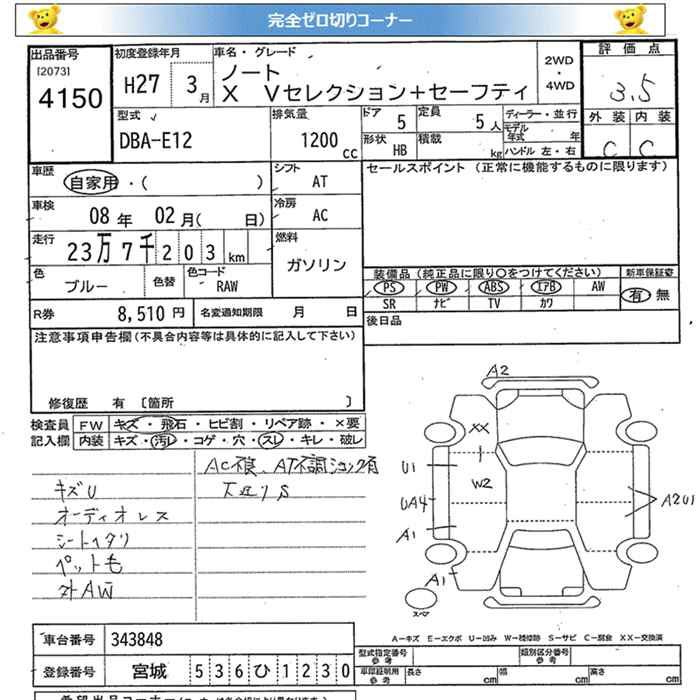 完全ゼロ切りコーナー
出品番号
[2073]
4150
初度登録年月
H27 3月
車名・グレード
ノート
X Vセレクション+セーフティ
2WD
・
4WD
評価点
3.5
外装 内装
C C
型式
DBA-E12
排気量
1200 CC
ドア 5
定員 5人
形状 HB
積載 kg
ディーラー・並行
モデル年式 年
ハンドル 左・右
車歴
自家用・( )
シフト
AT
セールスポイント (正常に機能するものに限ります)
車検
08年 02月( 日)
冷房
AC
走行
23万7千203km
燃料
ガソリン
色
ブルー
色替
色コード
RAW
装備品(純正品に限り○をつけてください)
新車保証書
PS PW ABS エアB AW
有 無
SR ナビ TV カワ
R券 8,510円
名変通知期限 月 日
後日品
注意事項申告欄(不具合内容等は具体的に記入して下さい)
修復歴 有 〔箇所 〕
検査員
記入欄
FW キズ・飛石・ヒビ割・リペア跡・×要
内装 キズ・汚レ・コゲ・穴・スレ・キレ・破レ
AC不良、AT不調ショック有
キズU
下廻りS
オーディオレス
シートヘタリ
ペット毛
外AW
A2
XX
U1
W2
UA4
A2U1
A1
A1
スペア
A-キズ E-エクボ U-凹み W-補修跡 S-サビ C-腐食 XX-交換済
車台番号 343848
登録番号 宮城 536ひ1230
型式指定番号
参考
類別区分番号
参考
車庫証明用
参考
長さ cm
幅 cm
高さ cm